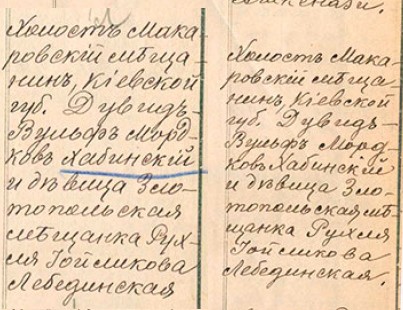 Холостъ Мака-
ровскій мѣща-
нинъ, Кіевской
губ. Дувидъ-
Вульфъ Морд-
ковъ Хабинскій
и дѣвица Зло-
топольская
мѣщанка Рух-
ля Іойликова
Лебединская
Холостъ Мака-
ровскій мѣща-
нинъ, Кіевской
губ. Дувидъ
Вульфъ Морд-
ковъ Хабинскій
и дѣвица Зло-
топольская мѣ-
щанка Рухля
Іойликова
Лебединская.